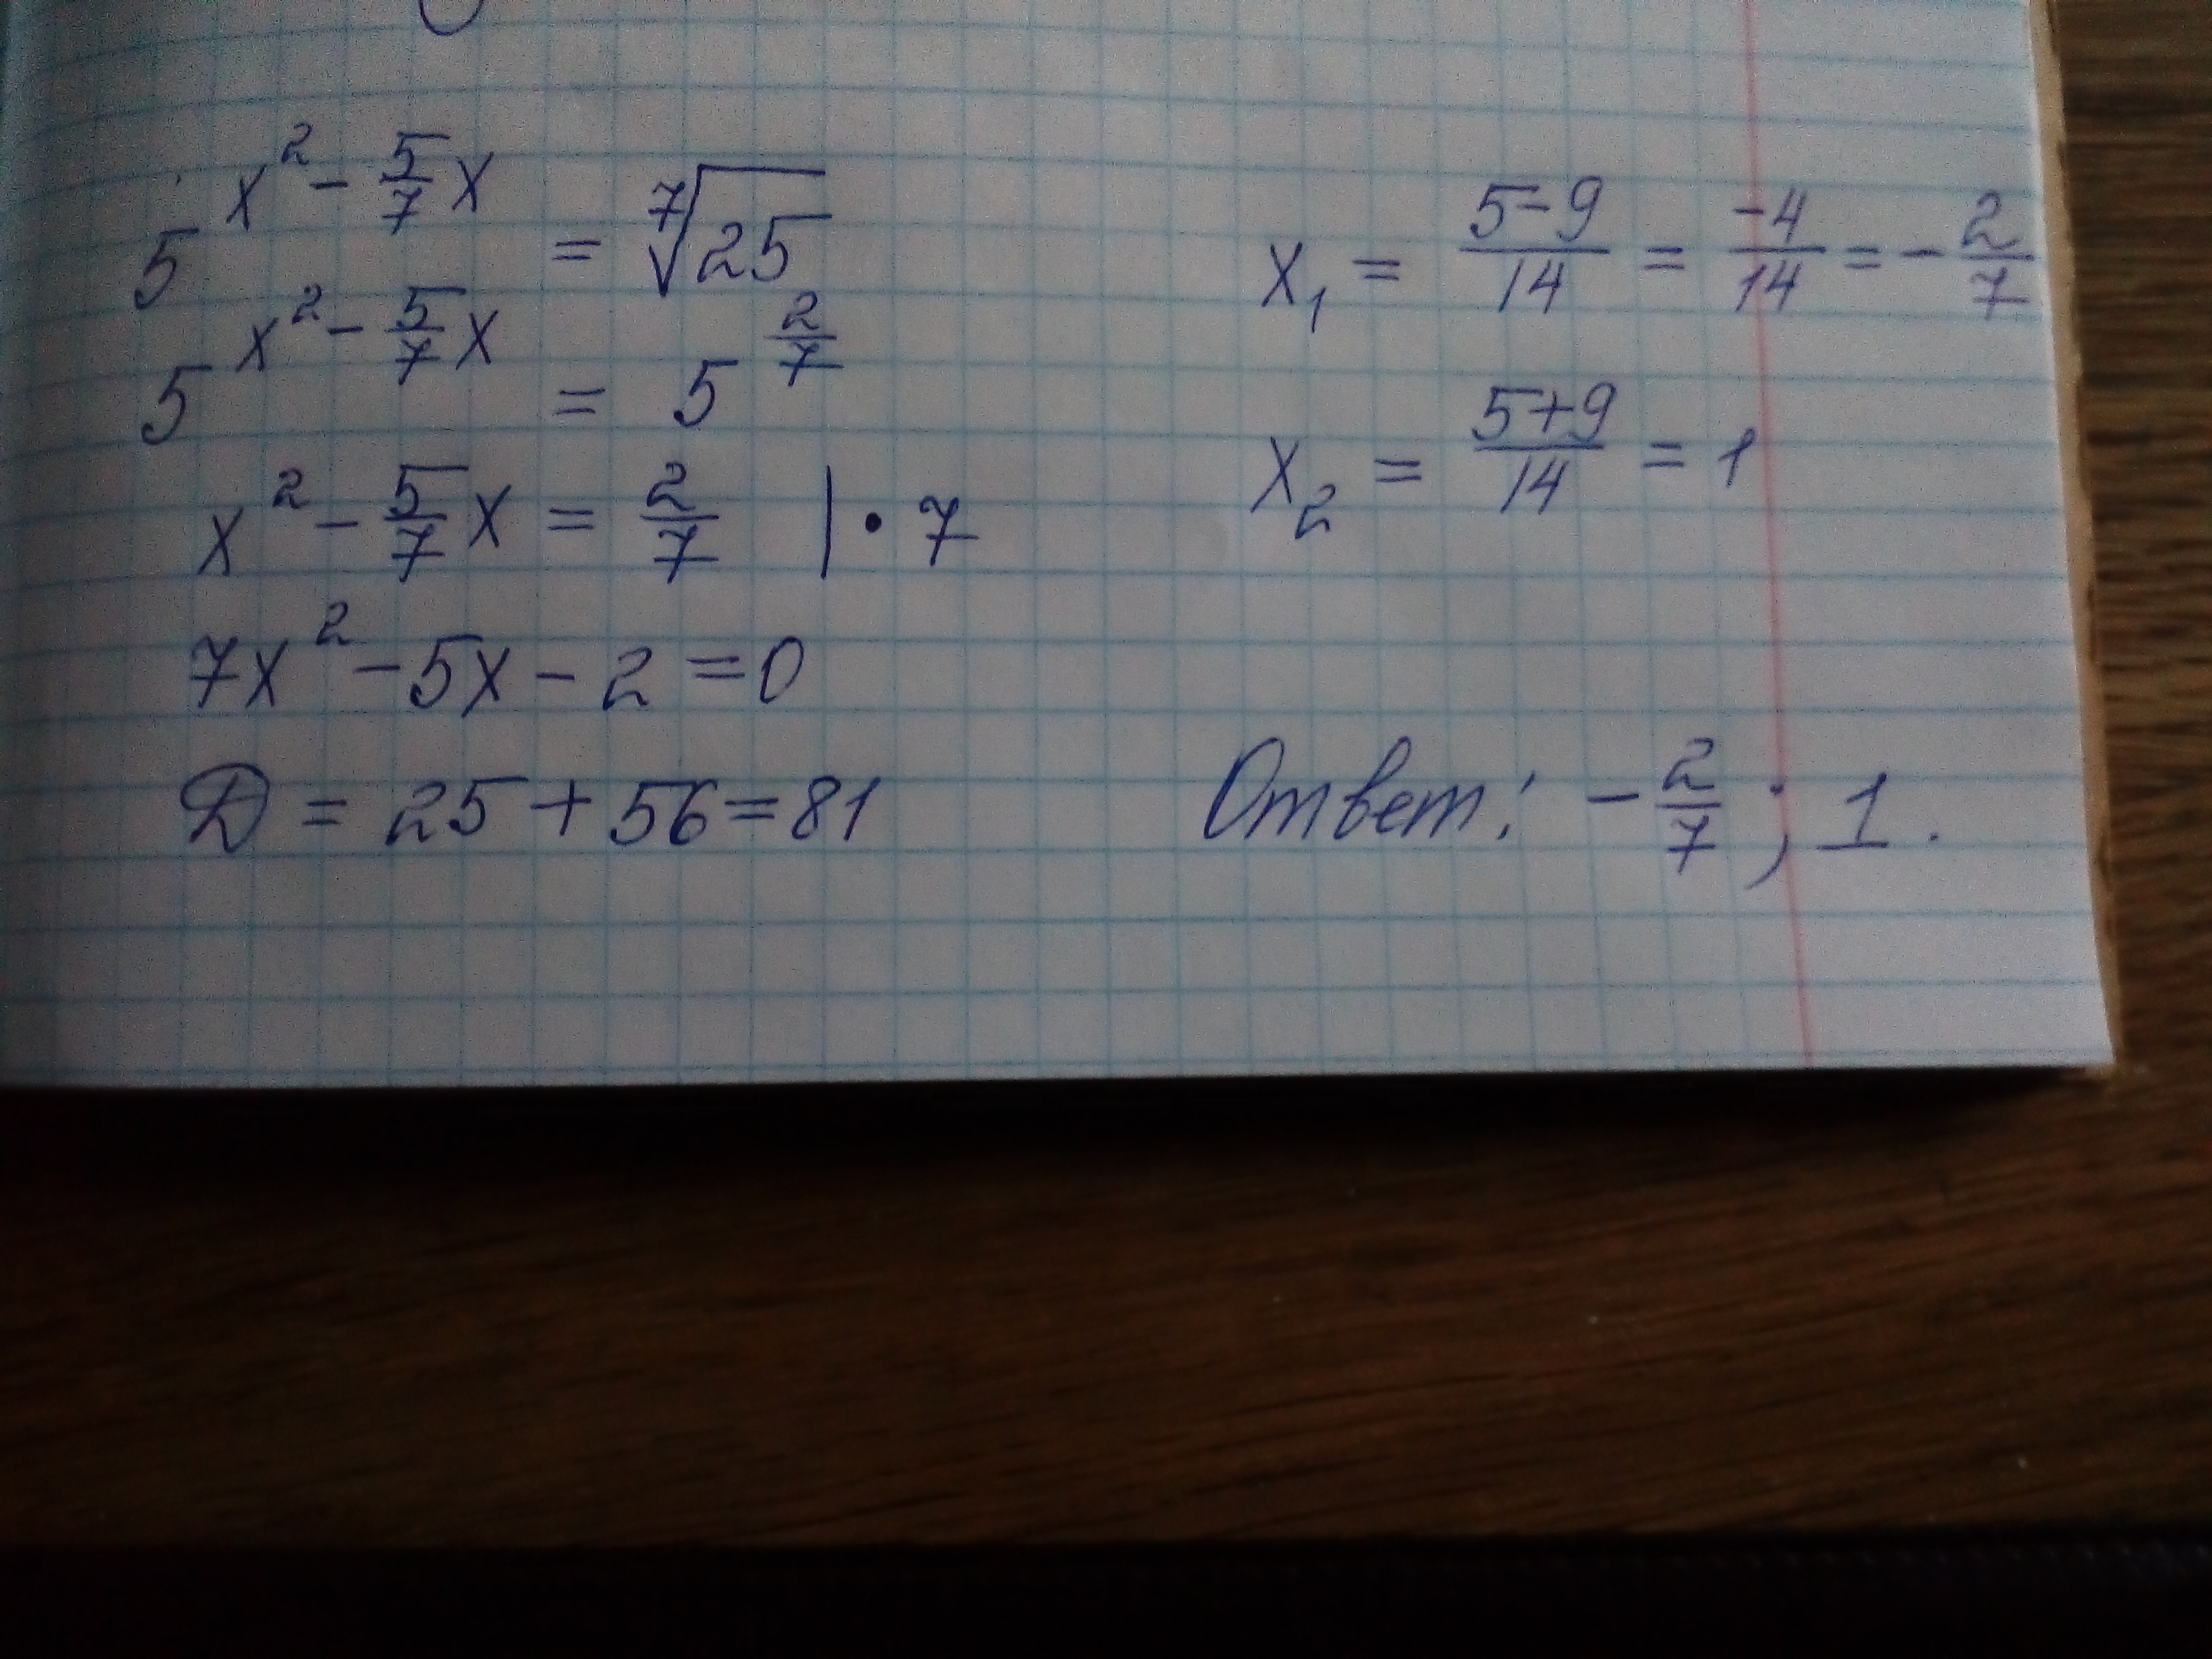 5^{x² - \frac{5}{7}x} = \sqrt[7]{25}
5^{x² - \frac{5}{7}x} = 5^{\frac{2}{7}}
x² - \frac{5}{7}x = \frac{2}{7} | · 7
7x² - 5x - 2 = 0
D = 25 + 56 = 81
x₁ = \frac{5-9}{14} = \frac{-4}{14} = -\frac{2}{7}
x₂ = \frac{5+9}{14} = 1
Ответ: -\frac{2}{7}; 1.